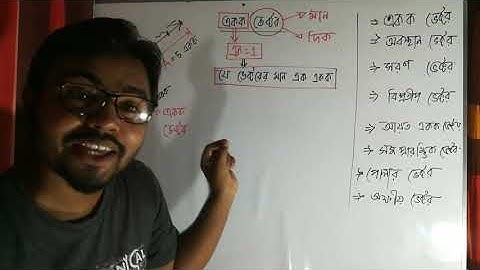 = 5 একক
একক
ভেক্টর
একক ভেক্টর → মান
→ দিক
মান = 1
যে ভেক্টরের মান এক একক
→ একক ভেক্টর
→ অবস্থান ভেক্টর
→ সরণ ভেক্টর
→ বিপ্রতীপ ভেক্টর
→ আয়ত একক ভেক্টর
→ সম প্রারম্ভিক ভেক্টর
→ পোলার ভেক্টর
→ অক্ষীয় ভেক্টর
CAL